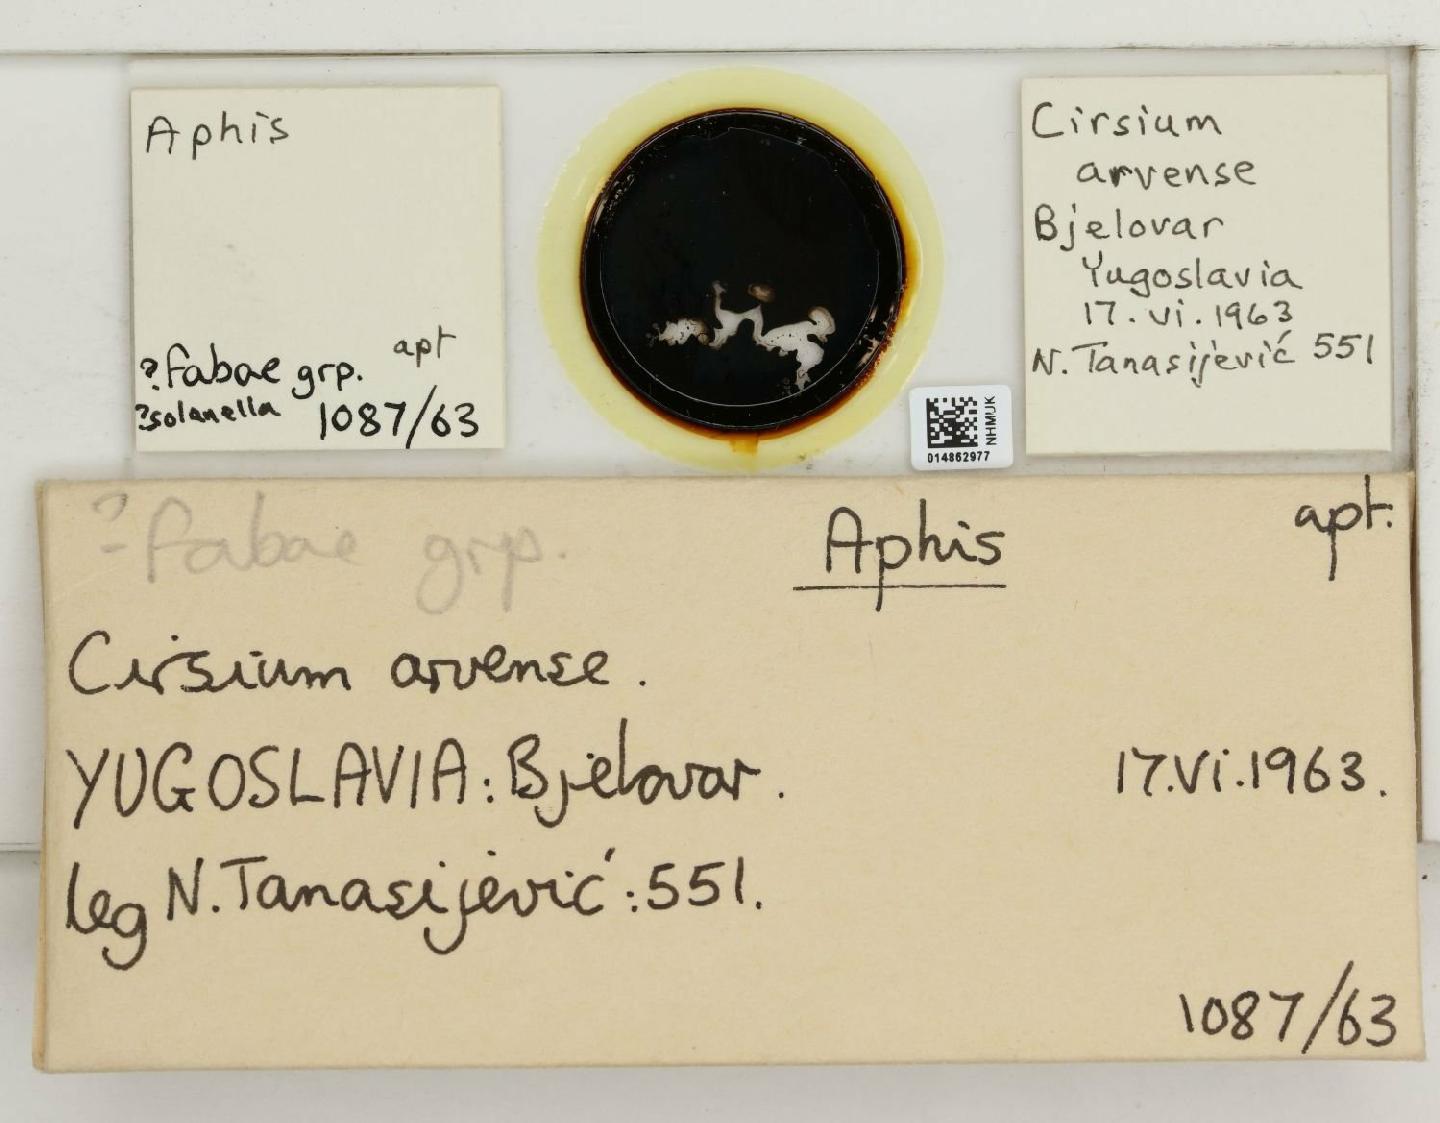 Aphis
apt
?fabae grp.
?solanella 1087/63
Cirsium
arvense
Bjelovar
Yugoslavia
17.vi.1963
N. Tanasijević 551
NHMUK
014862977
? fabae grp.
Aphis
apt.
Cirsium arvense.
YUGOSLAVIA: Bjelovar.
17.Vi.1963.
leg N. Tanasijević: 551.
1087/63